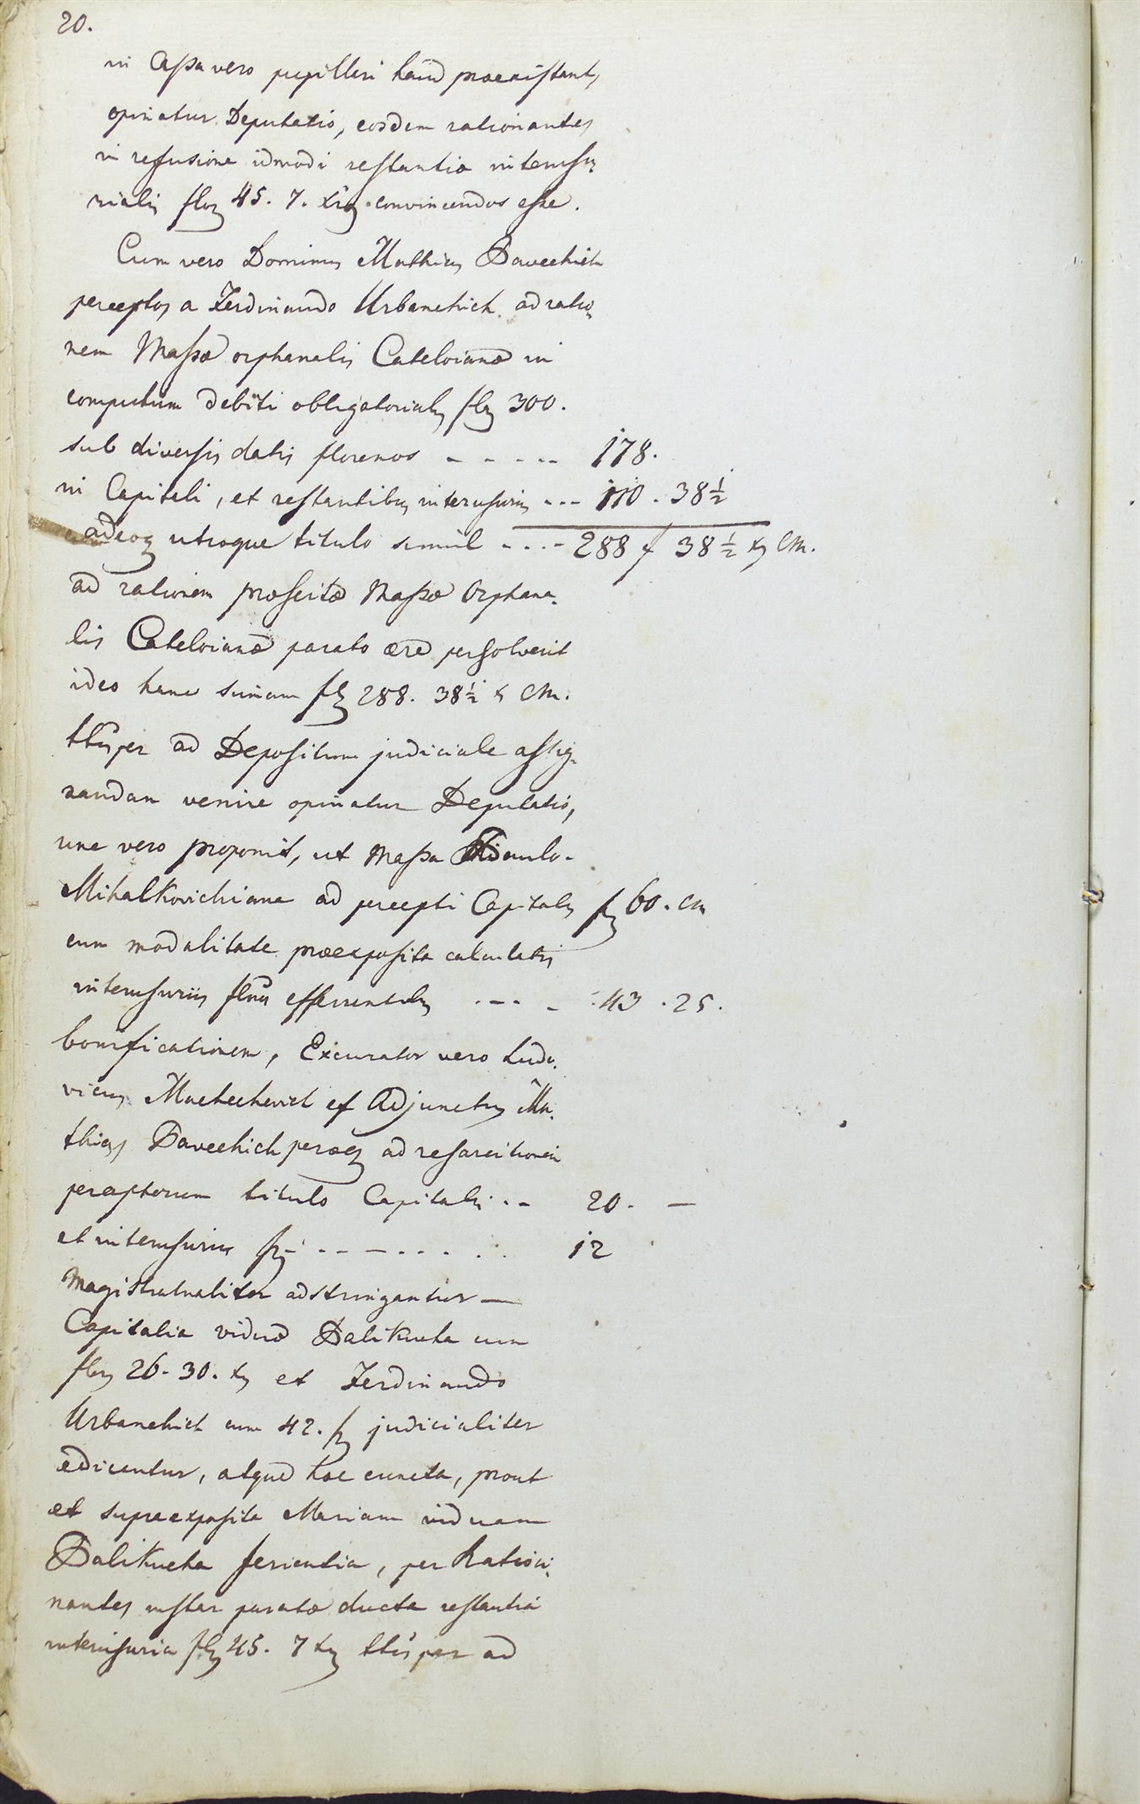 20.
in Cassa vero pupillari haud praeexistant,
opinatur Deputatio, eosdem rationantes
in refusione idmodi restantia interusu-
rialis flor 45. 7. xrig convincendos esse.
Cum vero Dominus Mathias Davechich
perceptos a Ferdinando Urbanchich ad ratio-
nem Massae orphanalis Cateloianae in
computum debiti obligatorialis fl 300.
sub diversis datis florenos - - - - - 178.
in Capitali, et restantibus interusuriis - - - 110 . 38½
adeoq utroque titulo simul - - - - 288 f 38½ x CM.
ad rationem praescitae Massae Orphana-
lis Cateloianae parato aere persolverit
ideo hanc sumam fl 288. 38½ x CM.
ttusper ad Depositum judiciale assig-
nandam venire opinatur Deputatio,
una vero proponit, ut Massa
Mihalkovichiana ad percepti Capitalis fl 60. CM
cum modalitate praeexposita calculatis
interusuriis flnos efferentibus - - - - 43 . 25.
bonificationem, Excurator vero Ludo-
vicus Machechevich et Adjunctus Ma-
thias Davechich peraeq ad resarcitionem
perceptorum titulo Capitalis - - 20. —
et interusurius fl - - - - - - - 12
Magistratualiter adstringantur —
Capitalia viduae Dalikucha cum
flor 26-30. x et Ferdinando
Urbanchich cum 42. f judicialiter
edicentur, atque hae cuncta, prout
et supraexposita Mariam viduam
Dalikucha ferientia, per Ratioci-
nantes instar paratae ducta restantia
interusuria fl 45. 7 x ttusper ad